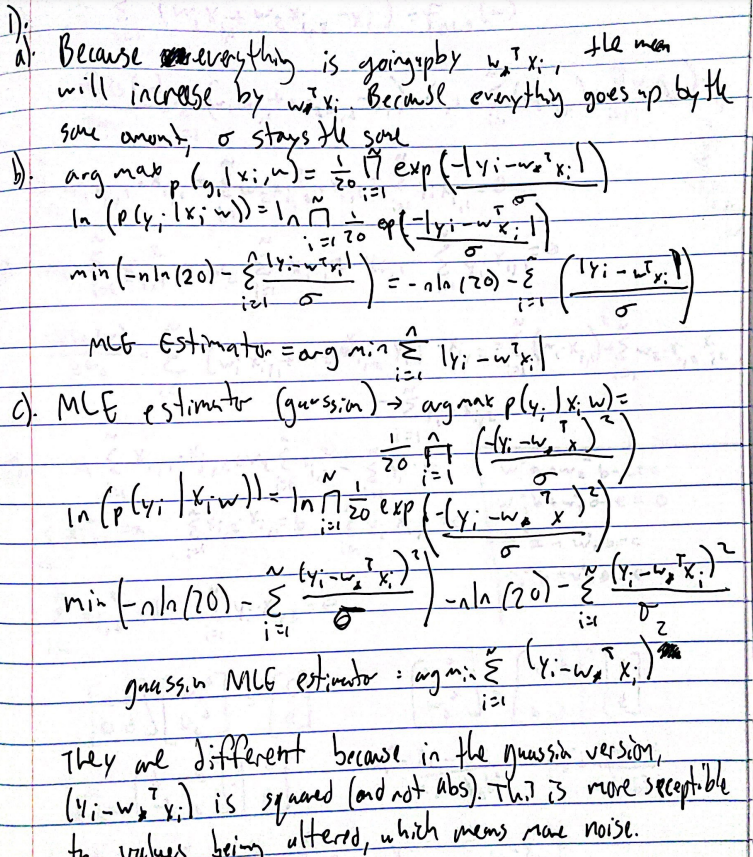 1).
a). Because everything is going up by w*ᵀxᵢ, the mean
will increase by w*ᵀxᵢ Because everything goes up by the
same amount, σ stays the same
b). arg max p(yᵢ|xᵢ,w) = 1/20 ∏ⁿᵢ₌₁ exp(-|yᵢ-w*ᵀxᵢ|/σ)
ln (p(yᵢ|xᵢw)) = ln ∏ⁿᵢ₌₁ 1/20 exp(-|yᵢ-wᵀxᵢ|/σ)
min(-nln(20) - Σⁿᵢ₌₁ |yᵢ-wᵀxᵢ|/σ) = -nln(20) - Σⁿᵢ₌₁ (|yᵢ-wᵀxᵢ|/σ)
MLE Estimator = arg min Σⁿᵢ₌₁ |yᵢ-wᵀxᵢ|
c). MLE estimator (guassian) → argmax p(yᵢ|xᵢw) =
1/20 ∏ⁿᵢ₌₁ (-(yᵢ-w*ᵀx)²/σ)
ln (p(yᵢ|xᵢw)) = ln ∏ᴺᵢ₌₁ 1/20 exp(-(yᵢ-w*ᵀx)²/σ)
min(-nln(20) - Σᴺᵢ₌₁ (yᵢ-w*ᵀxᵢ)²/σ) -nln(20) - Σᴺᵢ₌₁ (yᵢ-w*ᵀxᵢ)²/σ
guassin MLE estimator = argmin Σⁿᵢ₌₁ (yᵢ-w*ᵀxᵢ)²
They are different because in the guassin version,
(yᵢ-w*ᵀxᵢ) is squared (and not abs). This is more seceptible
to values being altered, which means more noise.